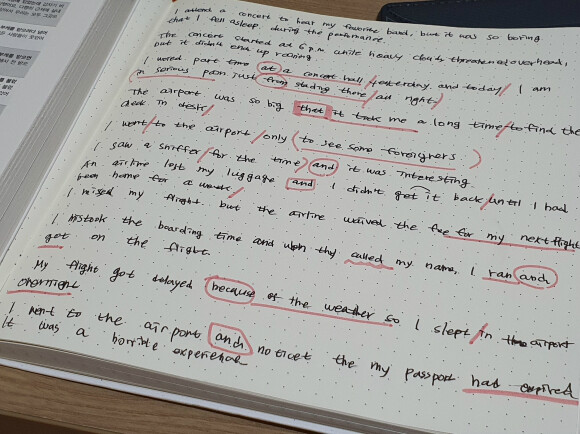 I attend a concert to hear my favorite band, but it was so boring
that I fell asleep during the performance.
The concert started at 6 p.m while heavy clouds threatened overhead,
but it didn't end up raining
I worked part time at a concert hall / yesterday and today / I am
in serious pain just from stading there / all right /
The airport was so big that it took me a long time / to find the
check in desk /
I went / to the airport / only (to see some foreigners)
I saw a sniffer / for the time / and it was interesting.
An airline lost my luggage and I didn't get it back / until I had
been home for a week /
I missed my flight but the airline waived the fee for my next flight
I mistook the boarding time and when they called my name, I ran and
got on the flight.
My flight got delayed because of the weather so I slept / in the airport
overnight
I went to the airport and noticet the my passport had expired
It was a horrible experience